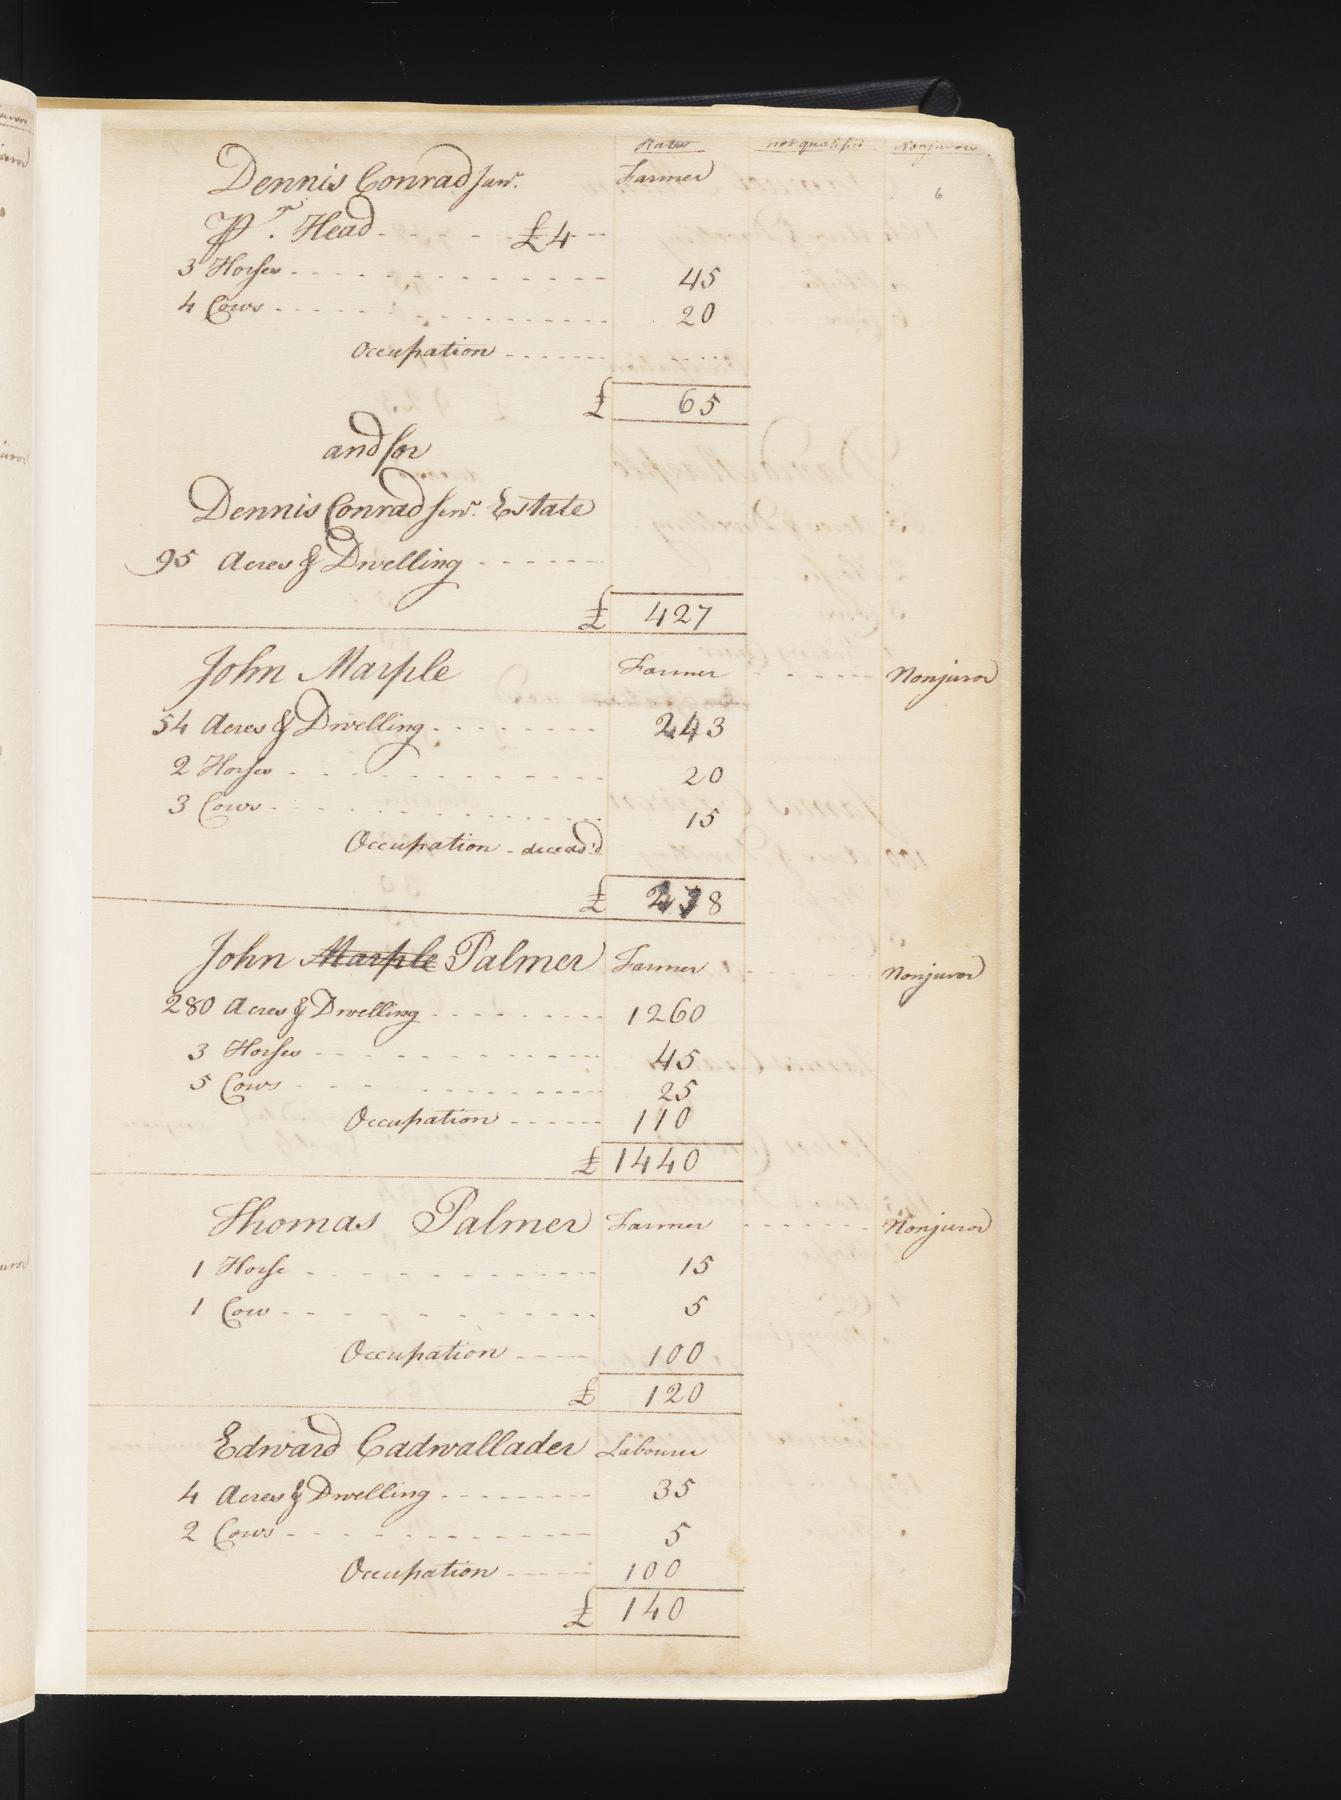 Rates not qualified Nonjurors
6
Dennis Conrad Junr. Farmer
Pr. Head £4
3 Horses 45
4 Cows 20
Occupation
£ 65
and for
Dennis Conrad Senr. Estate
95 Acres & Dwelling
£ 427
John Marple Farmer Nonjuror
54 Acres & Dwelling 243
2 Horses 20
3 Cows 15
Occupation - deceas'd
£ 278
John Marple Palmer Farmer Nonjuror
280 Acres & Dwelling 1260
3 Horses 45
5 Cows 25
Occupation 110
£ 1440
Thomas Palmer Farmer Nonjuror
1 Horse 15
1 Cow 5
Occupation 100
£ 120
Edward Cadwallader Labourer
4 Acres & Dwelling 35
2 Cows 5
Occupation 100
£ 140